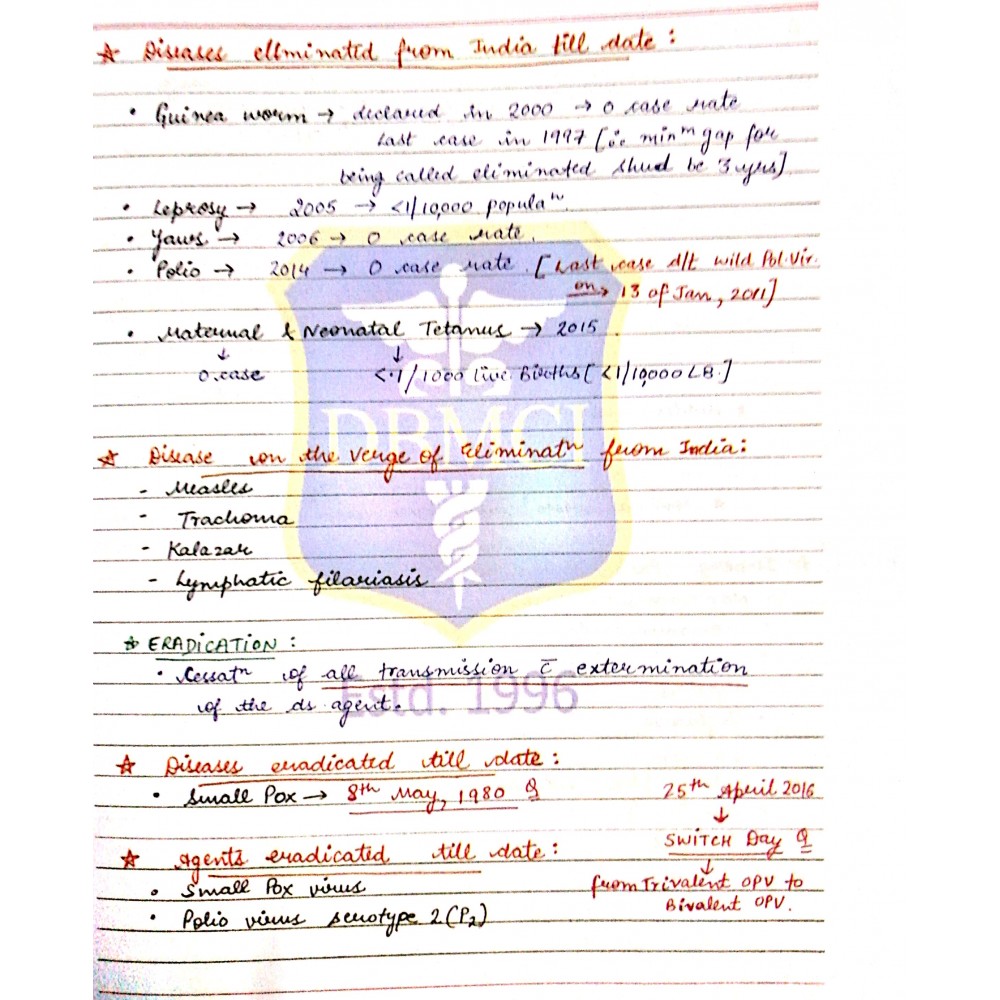 ☆ Diseases eliminated from India till date :
• Guinea worm → declared in 2000 → 0 case rate
Last case in 1997 [i.e minᵐ gap for
being called eliminated shud be 3 yrs]
• Leprosy → 2005 → <1/10,000 populaⁿ.
• Yaws → 2006 → 0 case rate.
• Polio → 2014 → 0 case rate. [Last case d/t wild Pol. Vir.
on, 13 of Jan, 2011]
• Maternal & Neonatal Tetanus → 2015.
↓ ↓
0.case <.1/1000 live Births [<1/10,000 LB.]
☆ Disease on the verge of Eliminatⁿ from India :
- Measles
- Trachoma
- Kalazar
- Lymphatic filariasis
☆ ERADICATION :
• Cessatⁿ of all transmission c̄ extermination
of the ds agent.
☆ Diseases eradicated till date :
• Small Pox → 8th May, 1980 Q
25th April 2016
↓
SWITCH Day Q
↓
from Trivalent OPV to
Bivalent OPV.
☆ Agents eradicated till date :
• Small Pox virus
• Polio virus serotype 2 (P₂)
DBMCI
Estd. 1996